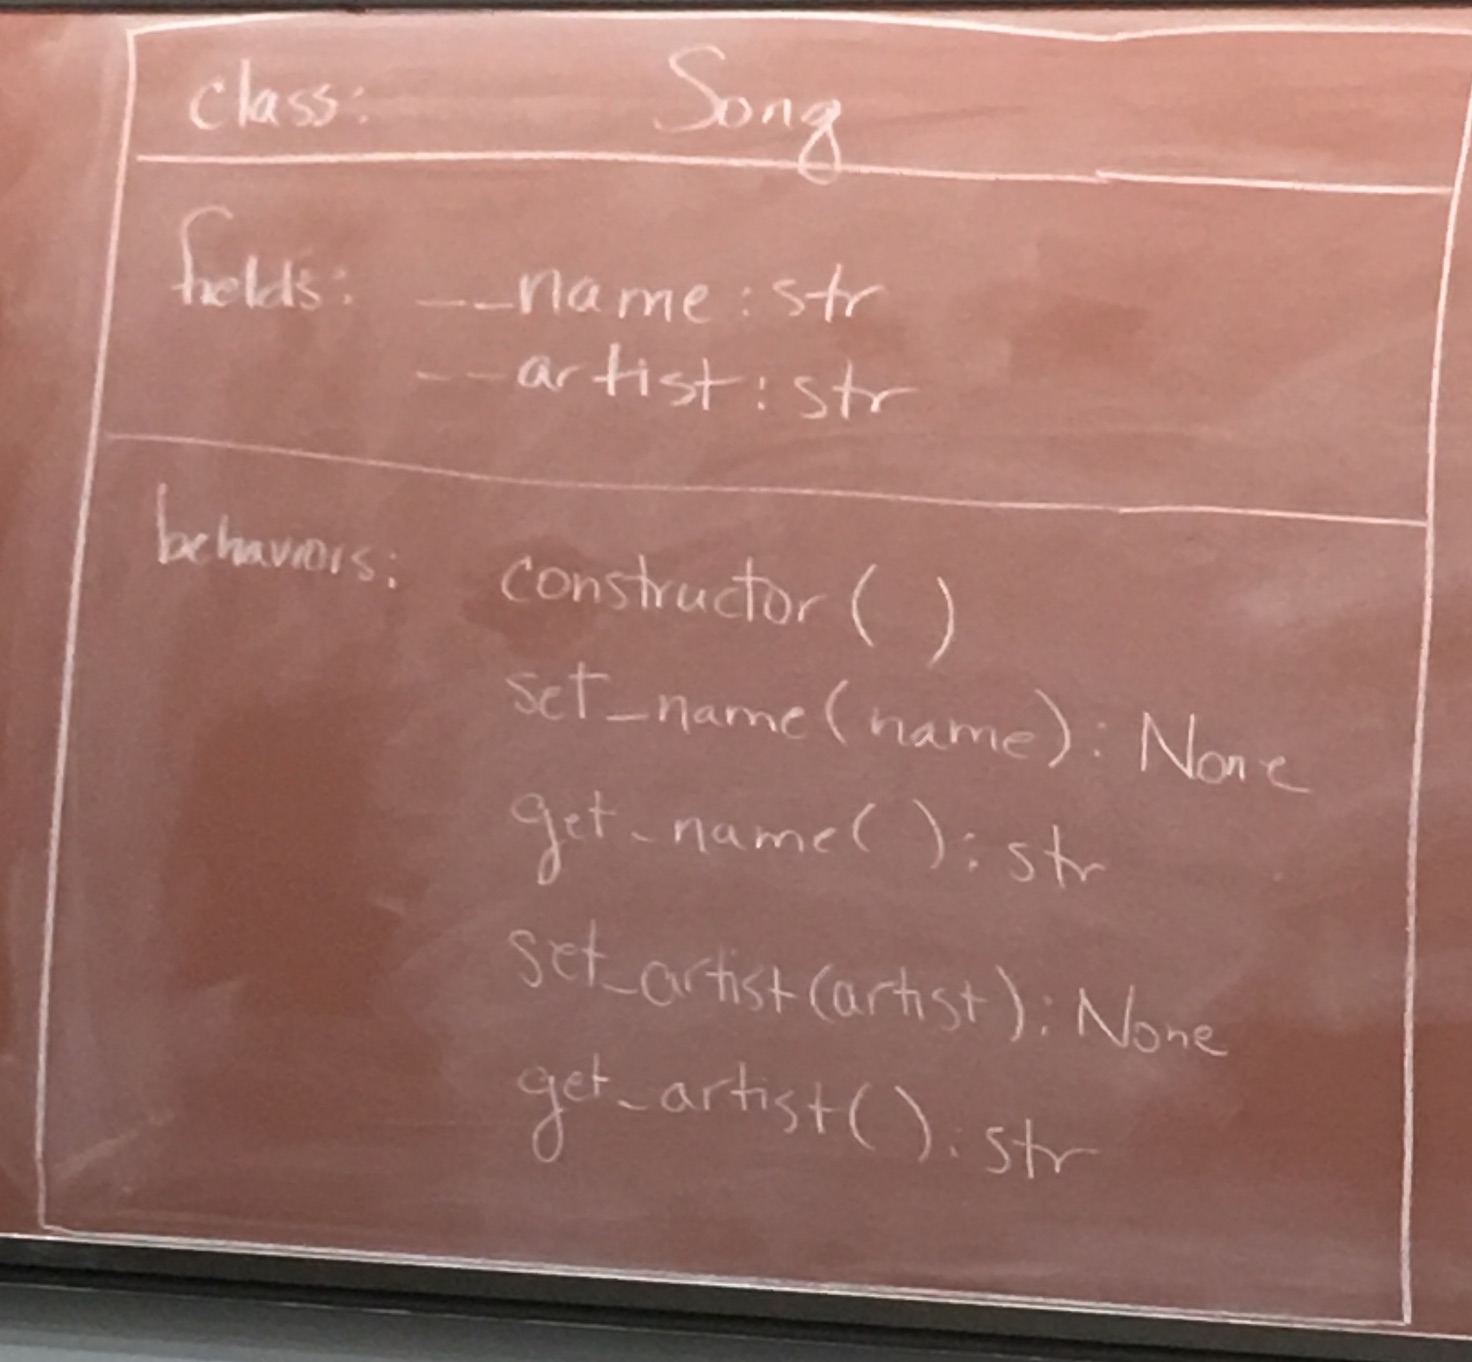 class: Song
fields: __name : str
__artist : str
behaviors: constructor( )
set_name(name) : None
get_name( ) : str
set_artist(artist) : None
get_artist( ) : str